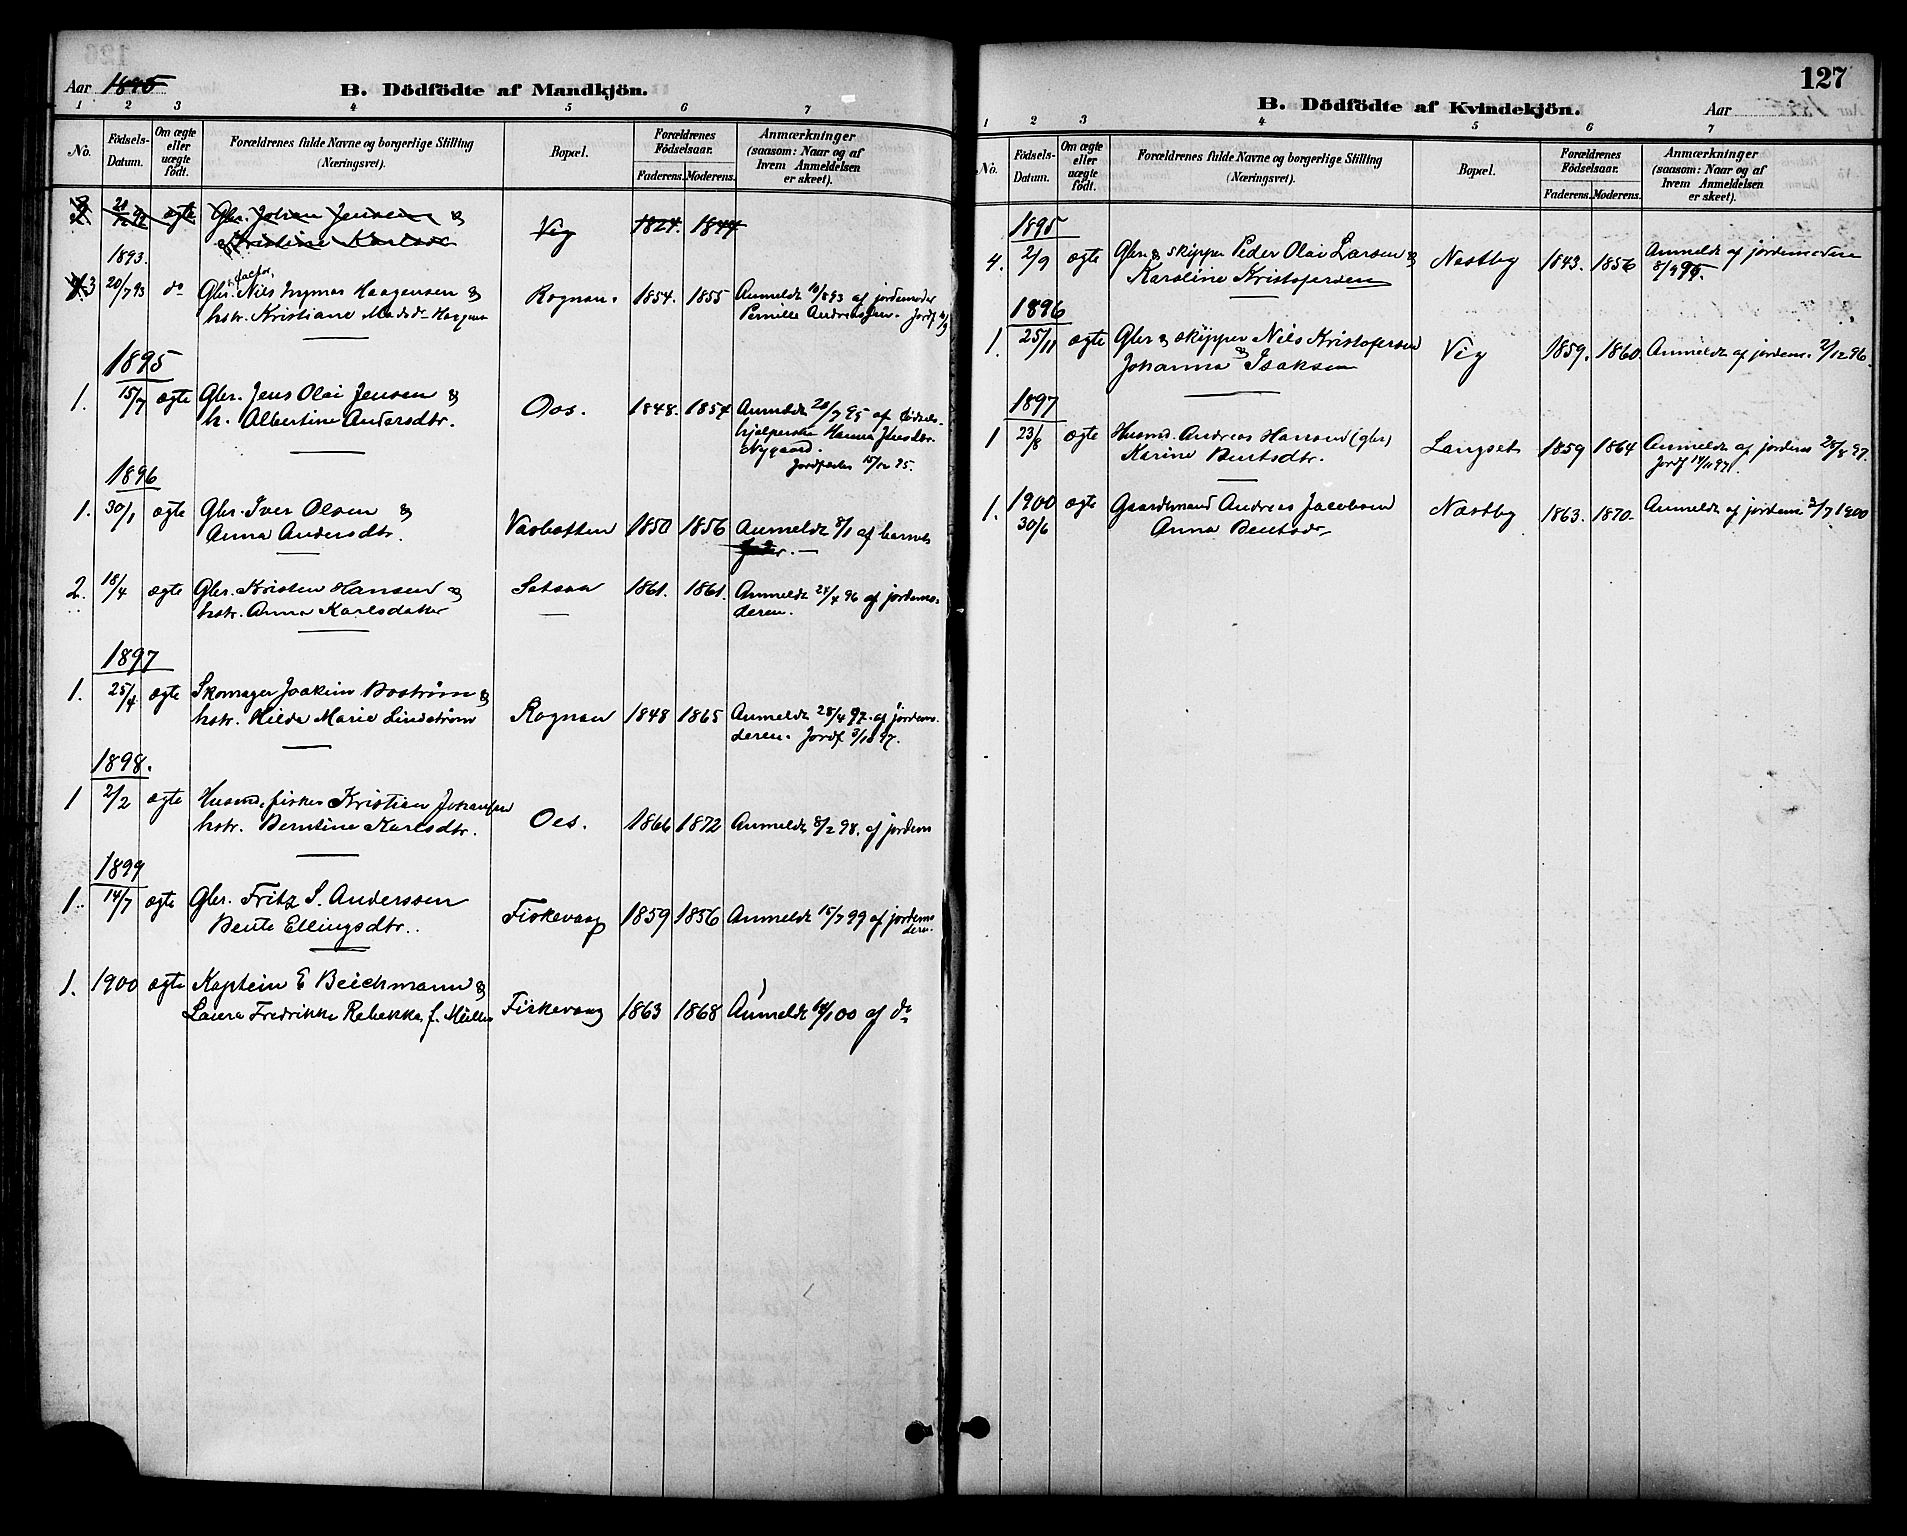 Aar 1895
B. Dödfödte af Mandkjön.
1 2 3 4 5 6 7
No. Födsels-Datum. Om ægte eller uægte födt. Forældrenes fulde Navne og borgerlige Stilling (Næringsvei). Bopæl. Forældrenes Födselsaar. Faderens. Moderens. Anmærkninger (saasom: Naar og af hvem Anmeldelsen er skeet).
ægte Gbr. Johan Jensen & Vig 1824. 1844
Kristine Karlsd.
1893.
3 20/7 93 do Gbr. Nils Ingmar Haagensen & Rognan. 1854. 1855 Anmeldt 10/8 93 af jordemoder
hstr. Kristiane Madsdr Pernille Andreassen. Jordf
1895
1. 15/7 ægte Gbr. Jens Olai Jensen & Oos. 1848. 1854 Anmeldt 20/7 95 af
h. Albertine Andersdtr. hjælperske Hanna Jensdtr.
Nygaard.
Jordfæstet 15/12 95.
1896
1. 30/1 ægte Gbr. Iver Olsen & Vasbotten 1850 1856 Anmeldt 8/1 af barnets
Anna Andersdtr. fader.
2. 18/4 ægte Gbr. Kristen Hansen & Saksaa 1861. 1861. Anmeldt 24/4 96 af jordemo-
hstr. Anna Karlsdatter deren.
1897
1. 25/4 ægte Skomager Joakim Boström & Rognan 1848 1865 Anmeldt 28/4 97. af jordemo-
hstr. Hilda Marie Lindström deren. Jordf 3/10 97.
1898.
1 2/2 ægte Husmd. fisker Kristian Johansen Oes. 1866 1872 Anmeldt 8/2 98. af jordem
hstr. Berntine Karlsdtr.
1899
1. 14/7 ægte Gbr. Fritz S. Anderssen Fiskevaag 1859 1856 Anmeldt 15/7 99 af jordemo
Bente Ellingsdtr. deren.
1. 1900 ægte Kaptein E Beichmann & Fiskevaag 1863 1868 Anmeldt 14/1 00 af do
Laura Fredrikke Rebekka f. Müller
127
B. Dödfödte af Kvindekjön.
Aar
1 2 3 4 5 6 7
No. Födsels-Datum. Om ægte eller uægte födt. Forældrenes fulde Navne og borgerlige Stilling (Næringsvei). Bopæl. Forældrenes Födselsaar. Faderens. Moderens. Anmærkninger (saasom: Naar og af hvem Anmeldelsen er skeet).
1895
4. 2/9 ægte Gbr. & skipper Peder Olai Larsen & Nestby 1843. 1856 Anmeldt af jordemoderen
Karoline Kristofersen 8/9 95.
1896
1. 25/11 ægte Gbr & skipper Nils Kristofersen Vig 1859. 1860. Anmeldt af jordem. 2/12 96.
& Johanna Isaksen
1897
1 23/8 ægte Husmd. Andreas Hansen (gbr) Langset 1859 1864 Anmeldt af jordem 28/8 97.
Karine Berntsdtr. Jordf 14/11 97.
1. 1900 ægte Gaardmand Andreas Jacobsen Nestby 1863. 1870. Anmeldt af jordem 3/7 1900
30/6 Anna Bentsdr